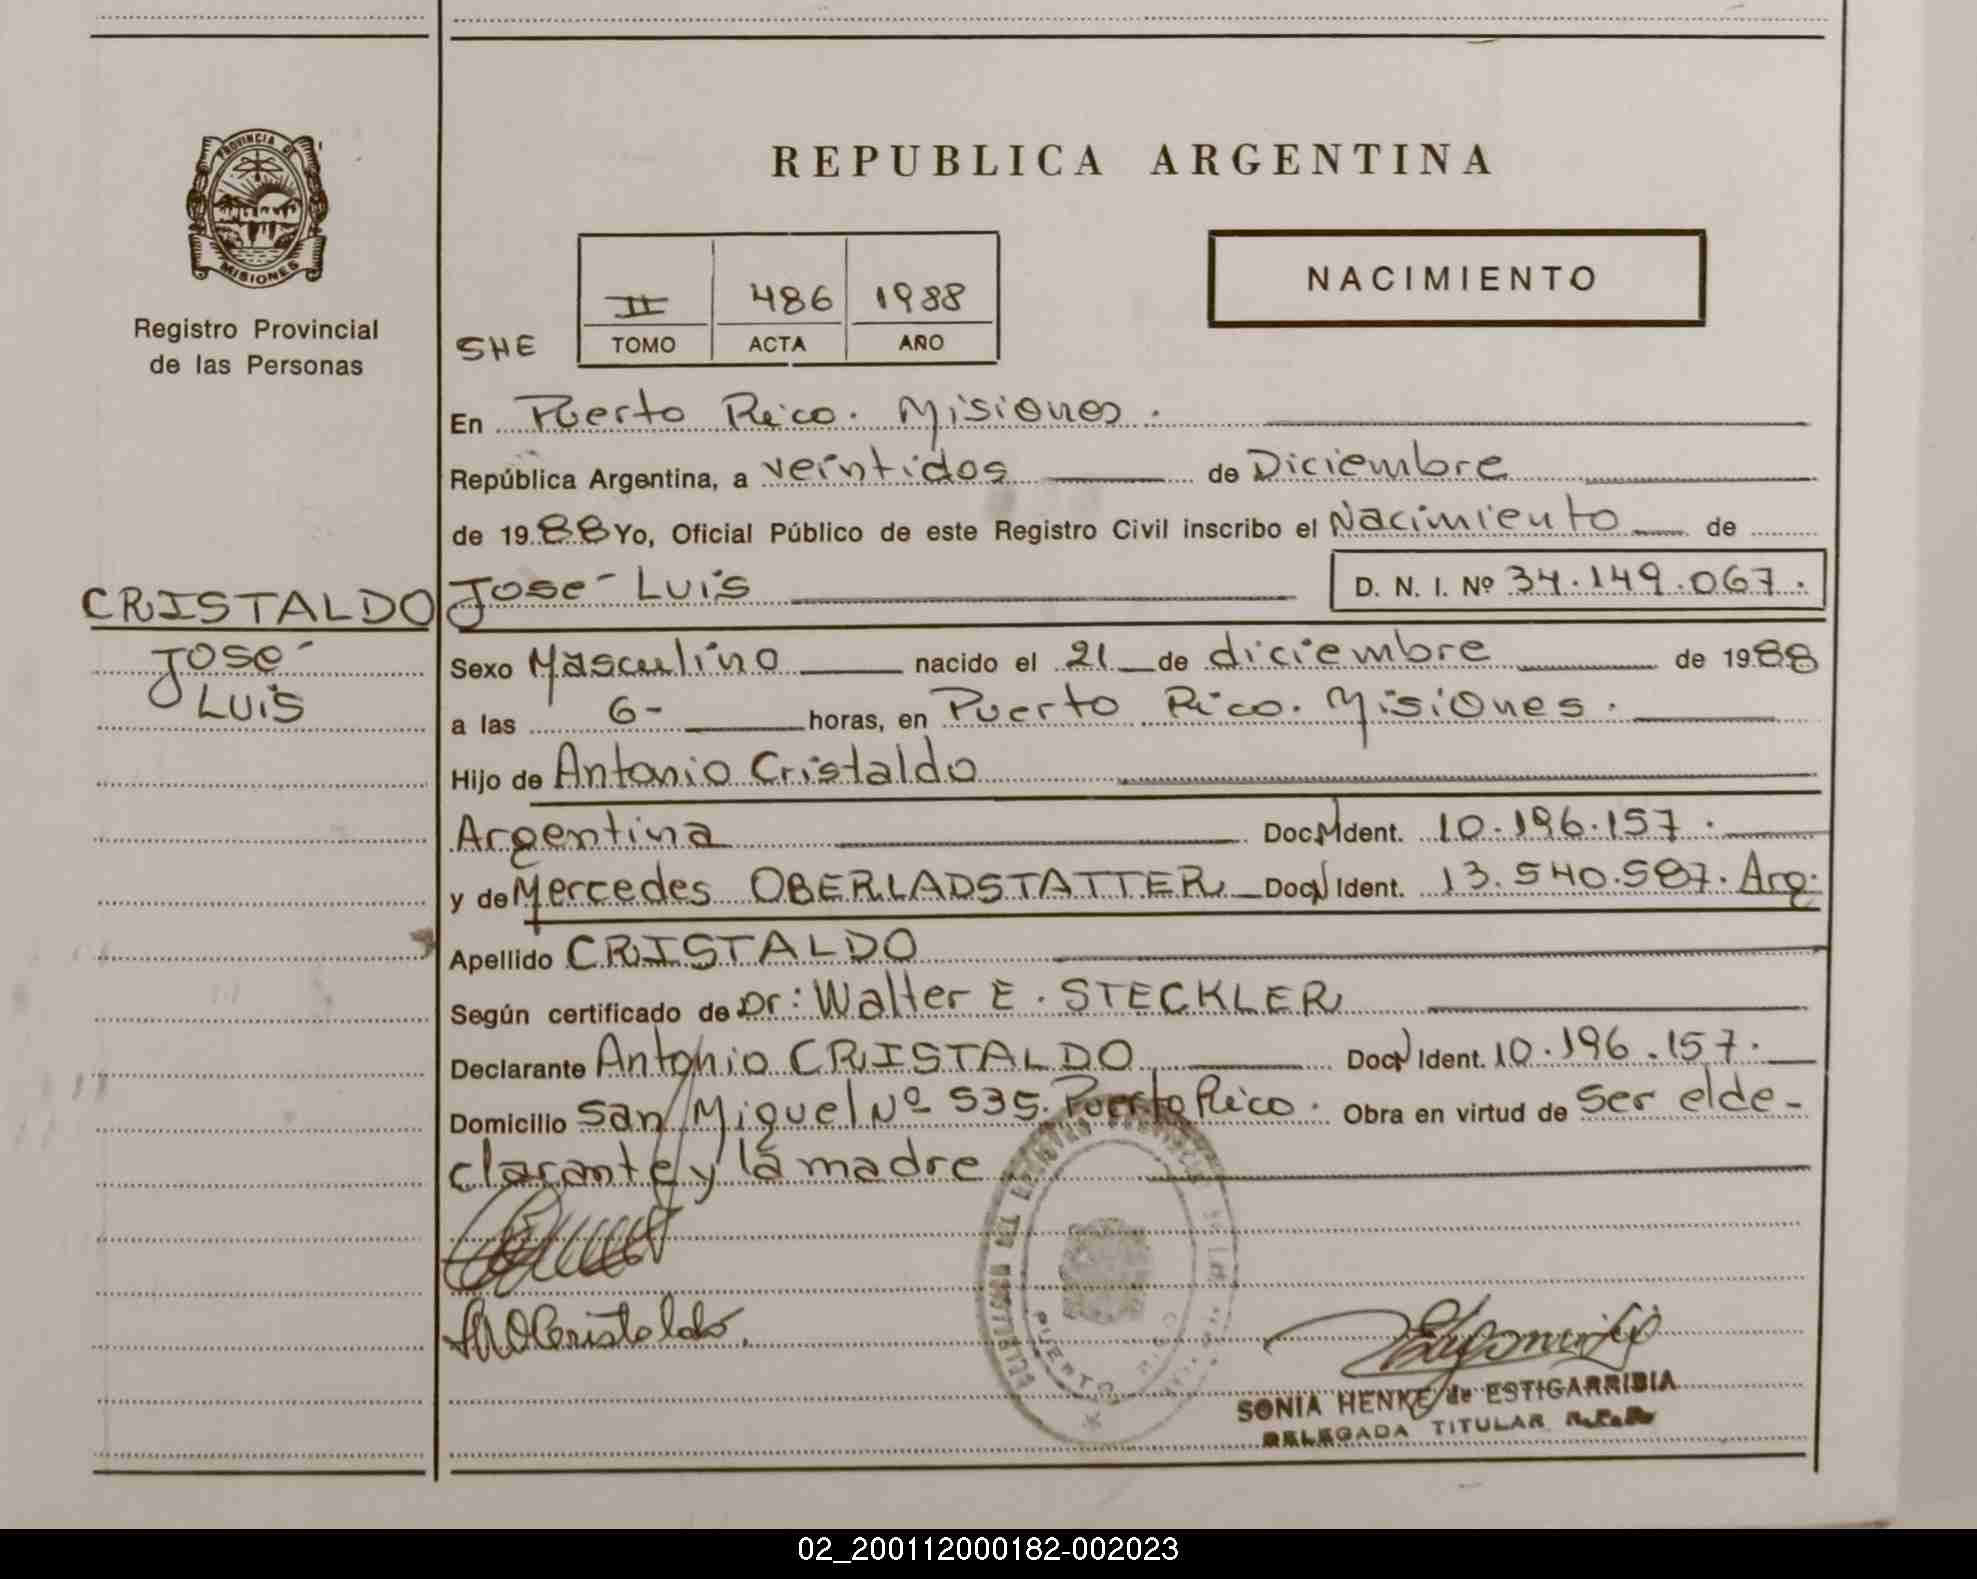 PROVINCIA DE
MISIONES
Registro Provincial
de las Personas
CRISTALDO
José
Luis
REPUBLICA ARGENTINA
II 486 1988
TOMO ACTA AÑO
NACIMIENTO
SHE
En Puerto Rico. Misiones.
República Argentina, a veintidos de Diciembre
de 1988 Yo, Oficial Público de este Registro Civil inscribo el Nacimiento de
José Luis D. N. I. Nº 34.149.067.
Sexo Masculino nacido el 21 de diciembre de 1988
a las 6- horas, en Puerto Rico. Misiones.
Hijo de Antonio Cristaldo
Argentina Doc. Ident. 10.196.157.
y de Mercedes OBERLADSTATTER Doc. Ident. 13.540.587. Arg.
Apellido CRISTALDO
Según certificado de Dr: Walter E. STECKLER
Declarante Antonio CRISTALDO Doc. Ident. 10.196.157.
Domicilio San Miguel Nº 535. Puerto Rico. Obra en virtud de ser el de-
clarante y la madre
Cristaldo.
PUERTO RICO
SONIA HENKE de ESTIGARRIBIA
DELEGADA TITULAR
02_200112000182-002023